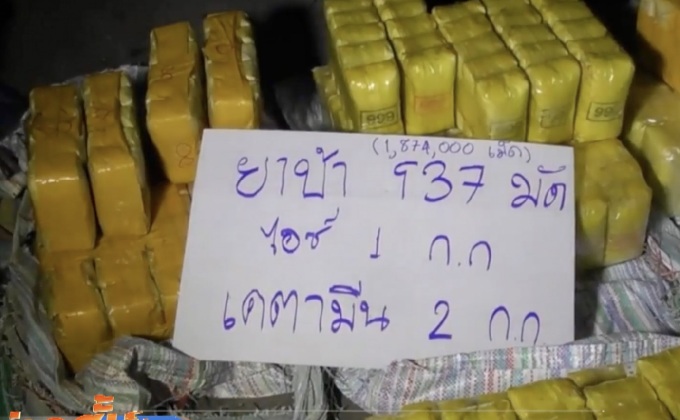 (1,874,000 เม็ด)
ยาบ้า 937 มัด
ไอซ์ 1 ก.ก
เคตามีน 2 ก.ก
999
999